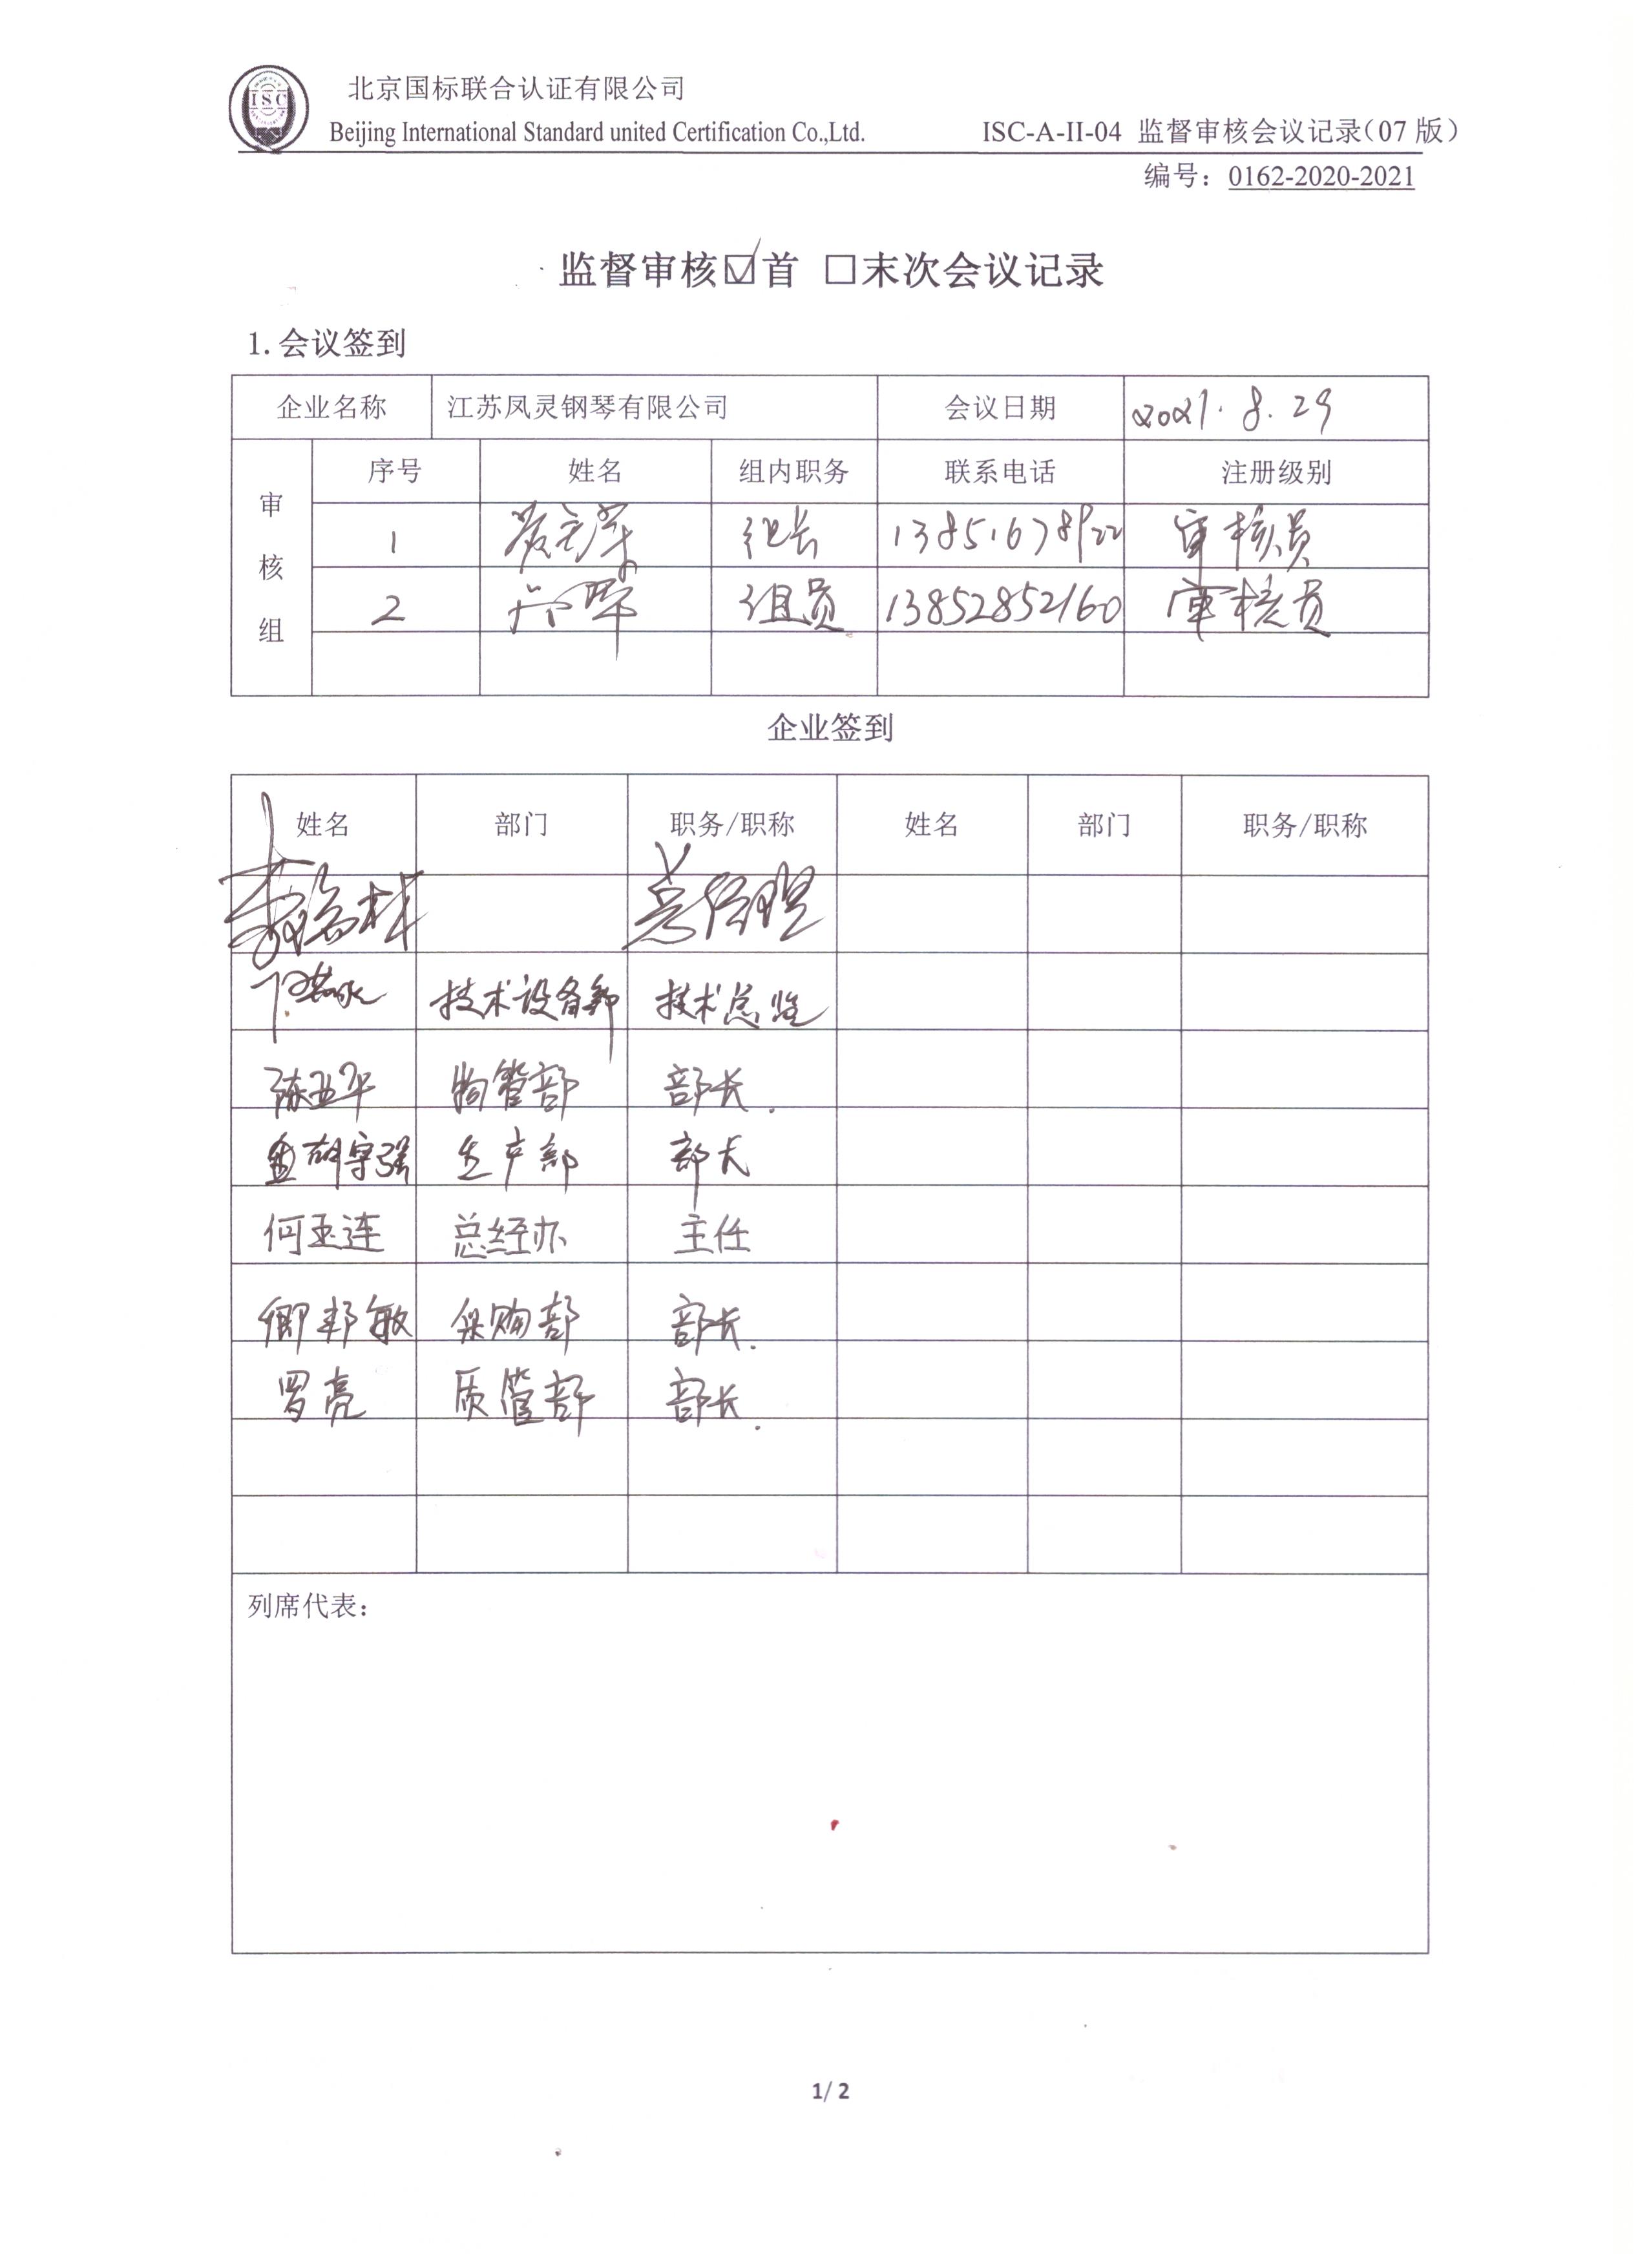 ISC
北京国标联合认证有限公司
Beijing International Standard united Certification Co.,Ltd.
ISC-A-II-04 监督审核会议记录(07 版)
编号: 0162-2020-2021
监督审核☑首 □末次会议记录
1.会议签到
企业名称 江苏凤灵钢琴有限公司 会议日期 2021.8.29
审核组 序号 姓名 组内职务 联系电话 注册级别
1 组长 13851678922 审核员
2 组员 13852852160 审核员
企业签到
姓名 部门 职务/职称 姓名 部门 职务/职称
总经理
技术设备部 技术总监
陈亚平 物管部 部长.
胡守强 生产部 部长
何玉连 总经办 主任
卿邦敏 采购部 部长.
罗亮 质管部 部长.
列席代表:
1/ 2